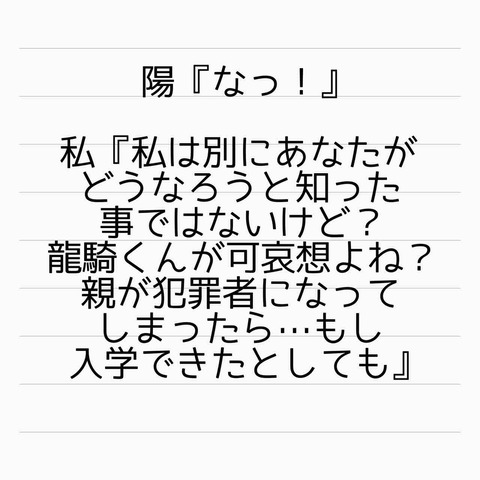 陽『なっ！』
私『私は別にあなたが
どうなろうと知った
事ではないけど？
龍騎くんが可哀想よね？
親が犯罪者になって
しまったら…もし
入学できたとしても』